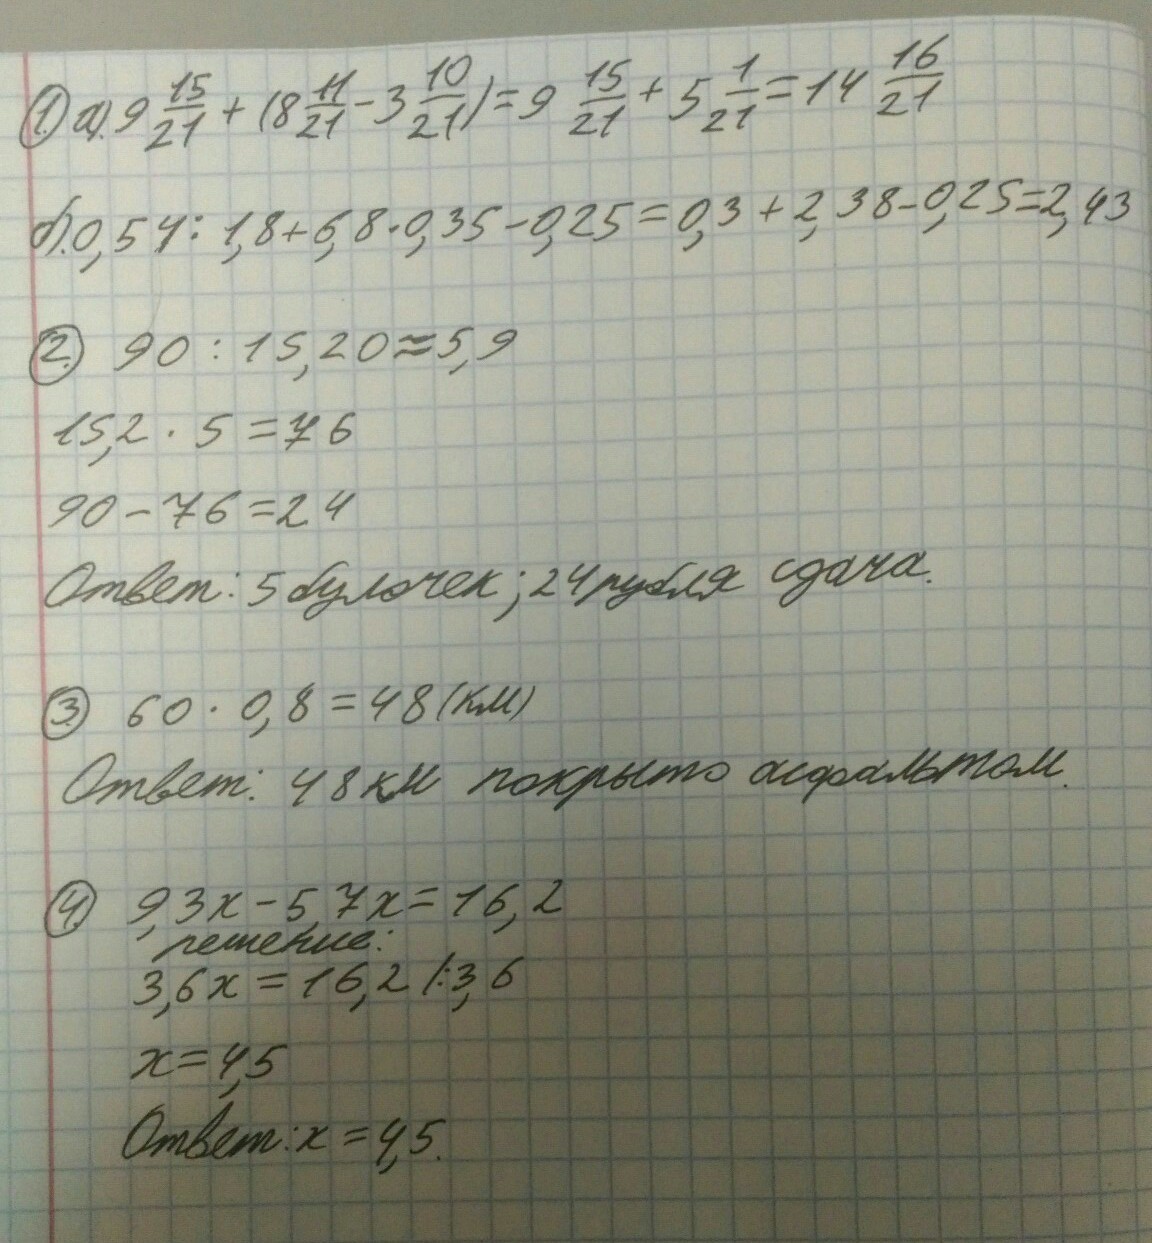 1. а). 9 15/21 + (8 11/21 - 3 10/21) = 9 15/21 + 5 1/21 = 14 16/21
б). 0,54 : 1,8 + 6,8 · 0,35 - 0,25 = 0,3 + 2,38 - 0,25 = 2,43
2. 90 : 15,20 ≈ 5,9
15,2 · 5 = 76
90 - 76 = 24
Ответ: 5 булочек; 24 рубля сдача.
3. 60 · 0,8 = 48 (км)
Ответ: 48 км покрыто асфальтом.
4. 9,3x - 5,7x = 16,2
решение:
3,6x = 16,2 /:3,6
x = 4,5
Ответ: x = 4,5.